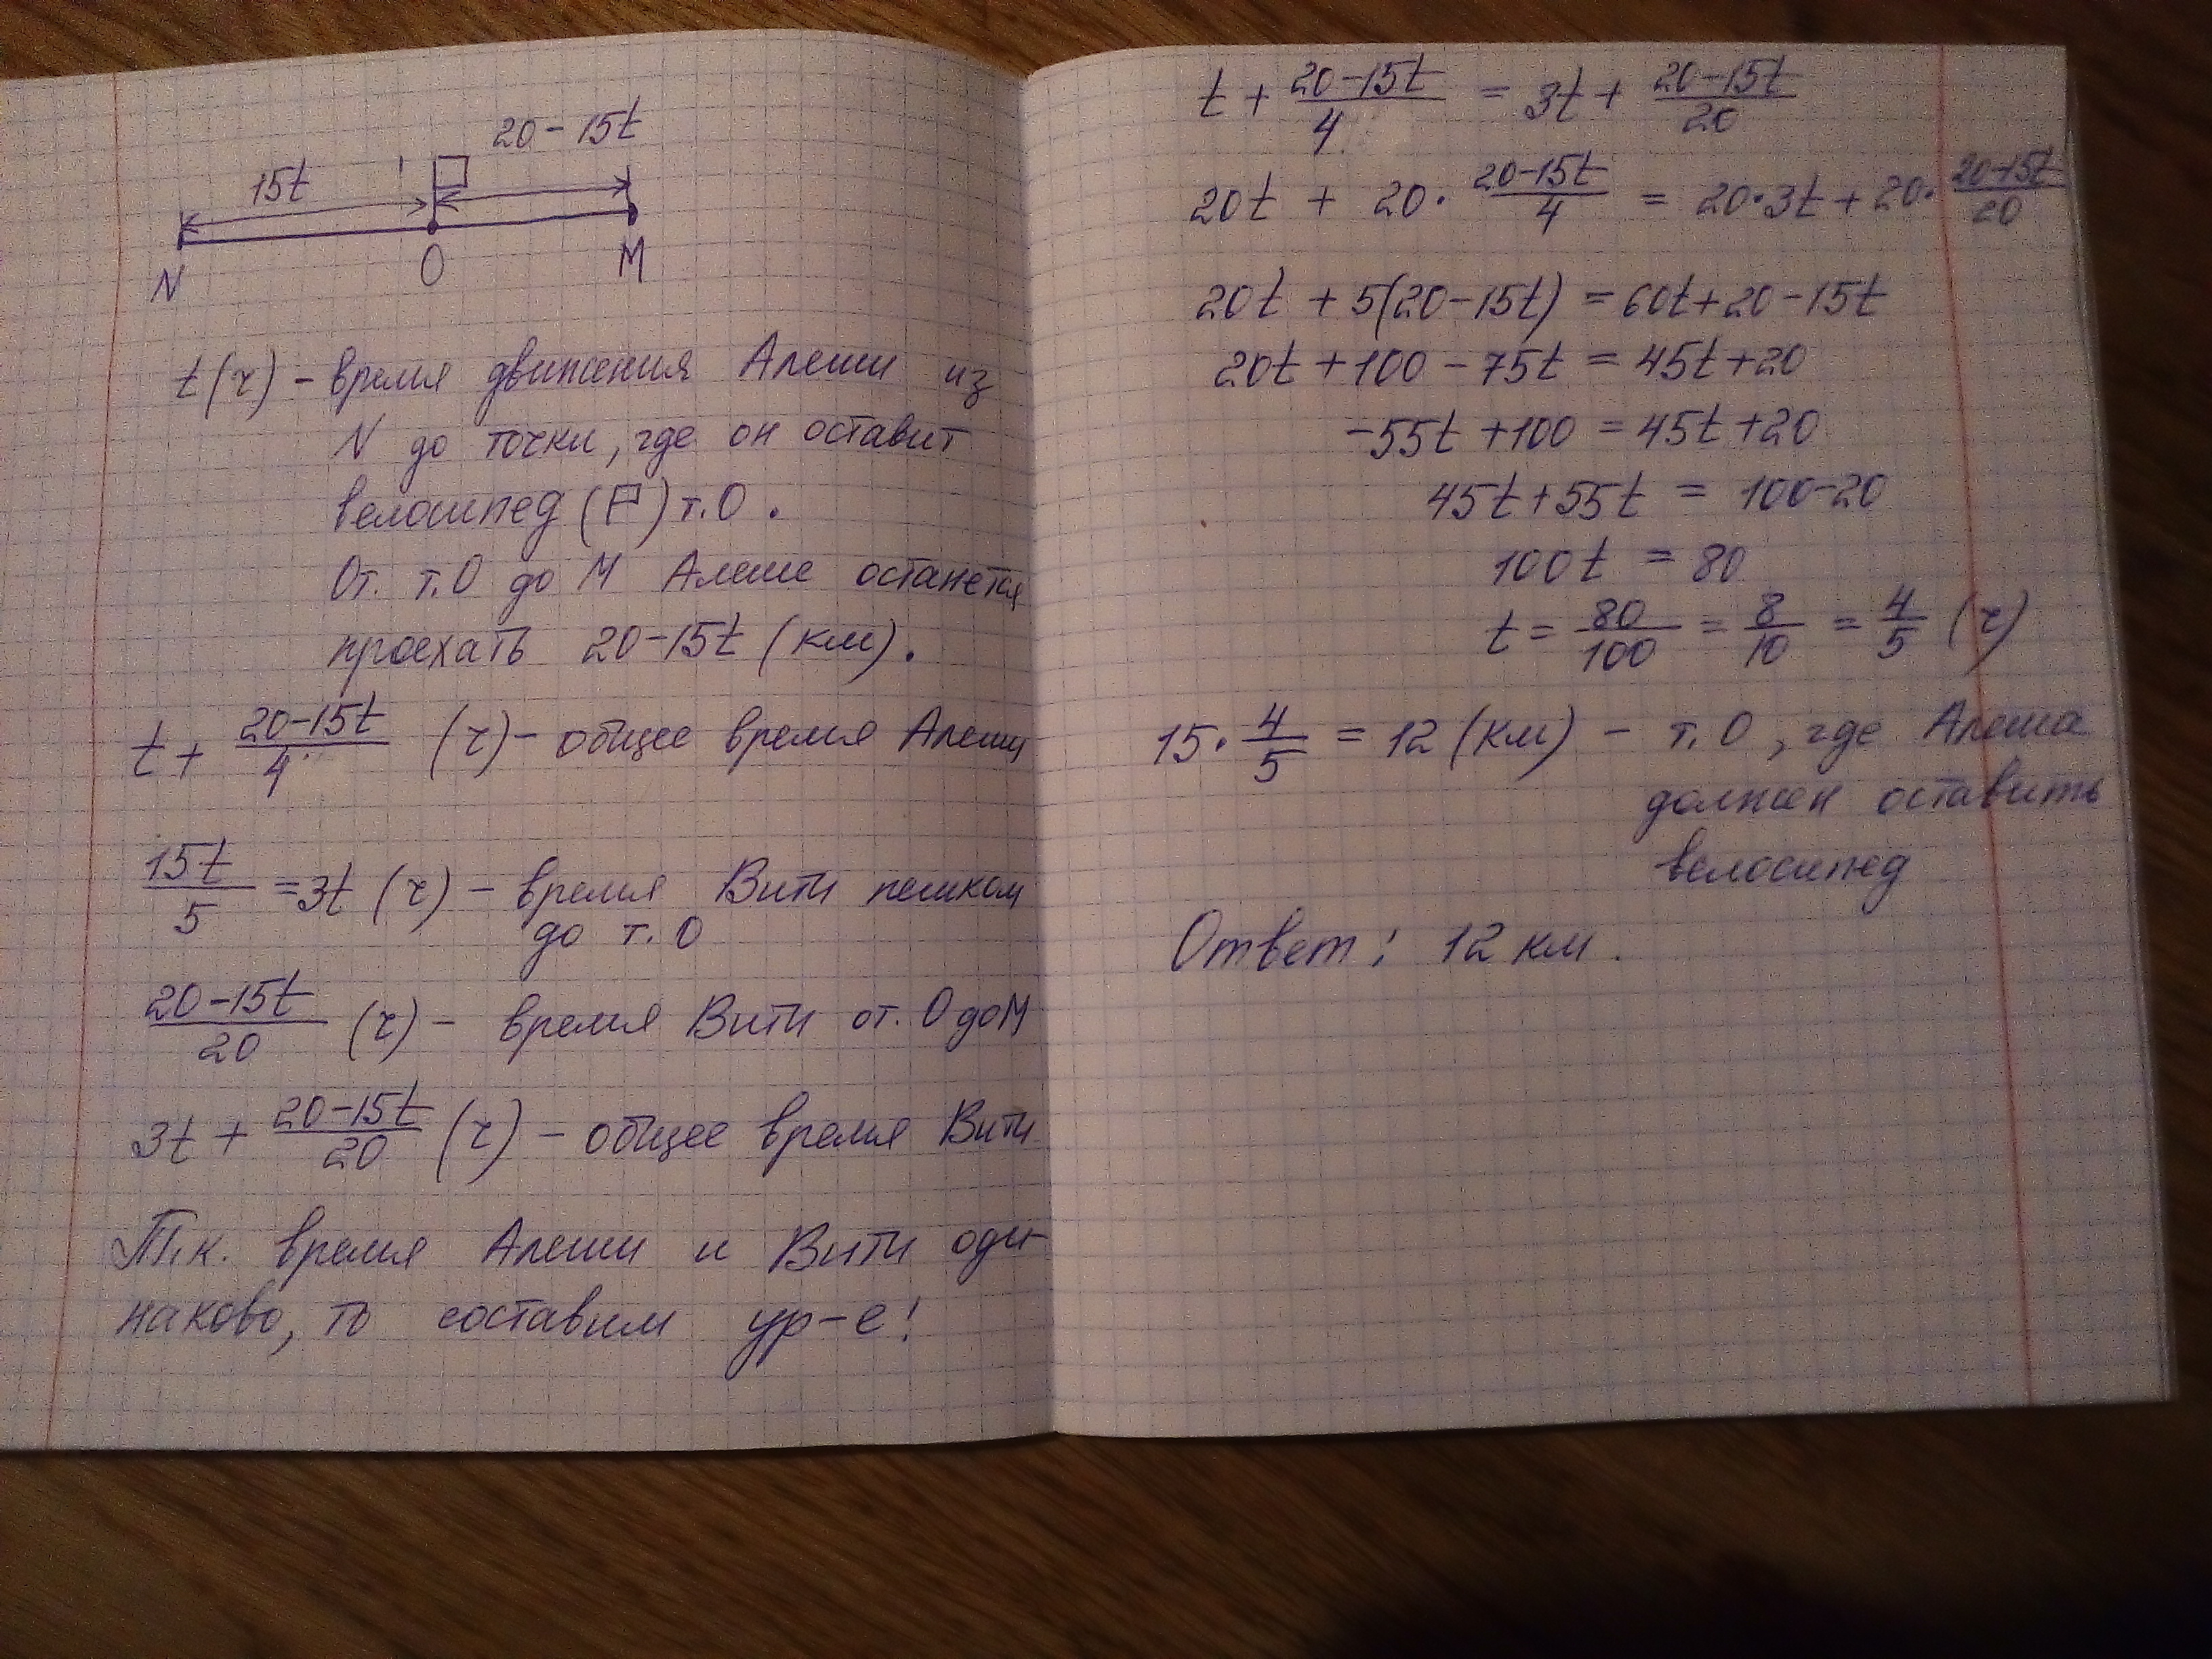 20-15t
15t
N O M
t(ч) - время движения Алеши из
N до точки, где он оставит
велосипед ( ) т.О.
От. т.О до М Алеше останется
проехать 20-15t (км).
t + (20-15t)/4 (ч) - общее время Алеши
15t/5 = 3t (ч) - время Вити пешком
до т.О
(20-15t)/20 (ч) - время Вити от. О до М
3t + (20-15t)/20 (ч) - общее время Вити
Т.к. время Алеши и Вити оди-
наково, то составим ур-е:
t + (20-15t)/4 = 3t + (20-15t)/20
20t + 20·(20-15t)/4 = 20·3t + 20·(20-15t)/20
20t + 5(20-15t) = 60t+20-15t
20t +100 - 75t = 45t+20
-55t +100 = 45t+20
45t+55t = 100-20
100t = 80
t = 80/100 = 8/10 = 4/5 (ч)
15·4/5 = 12 (км) - т.О, где Алеша
должен оставить
велосипед
Ответ: 12 км.